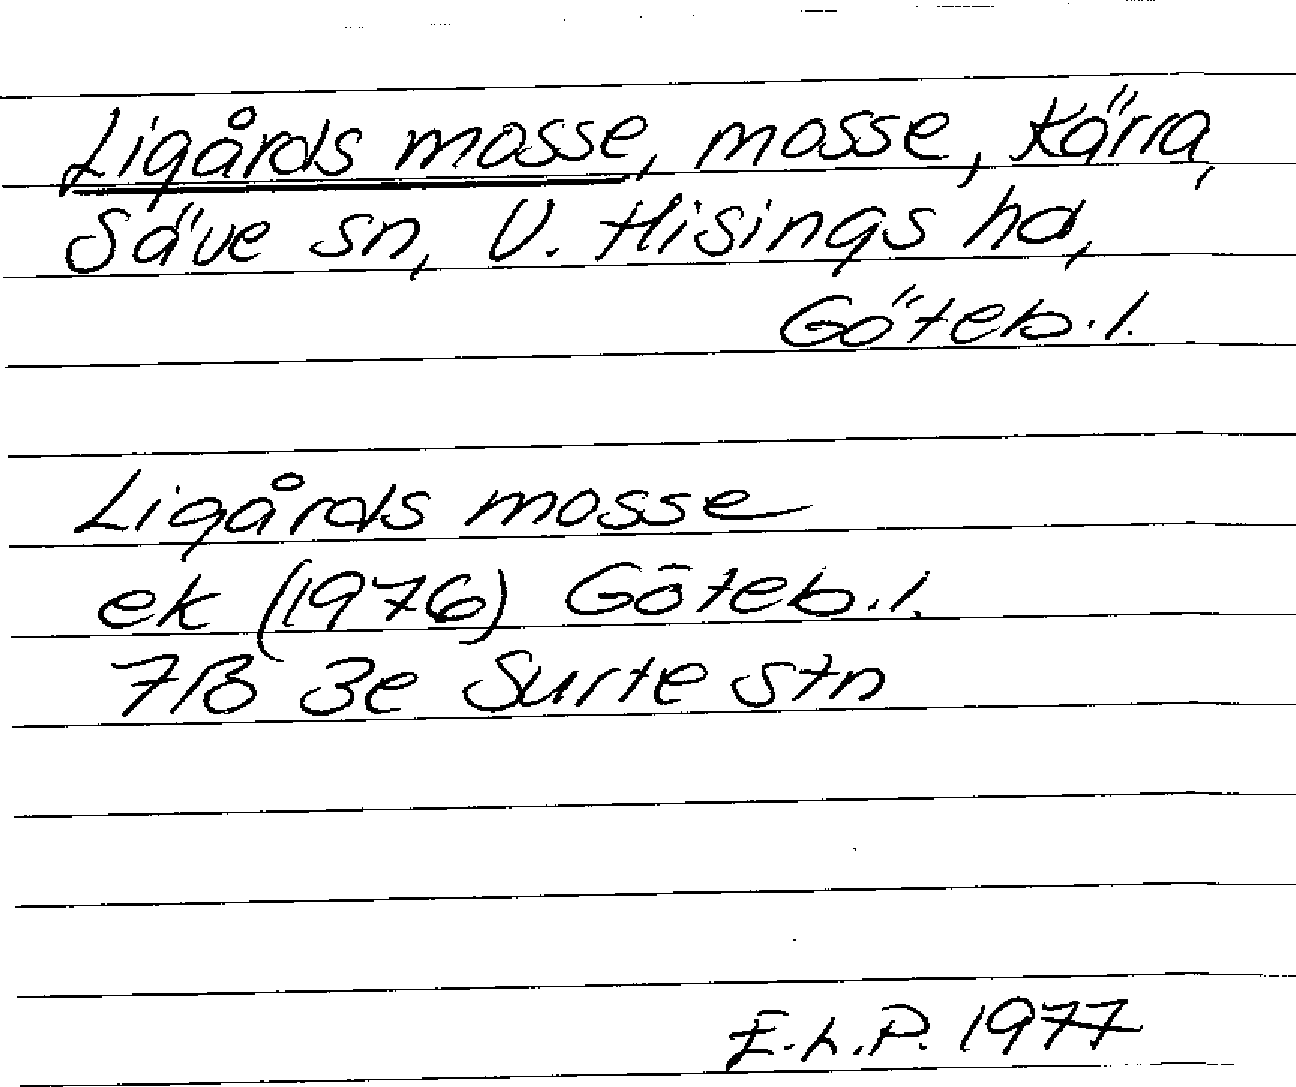 Ligårds mosse, mosse, Kärra,
Säve sn, V. Hisings hd,
Göteb.l.
Ligårds mosse
ek (1976) Göteb.l.
7B 3e Surte stn
E.L.P. 1977